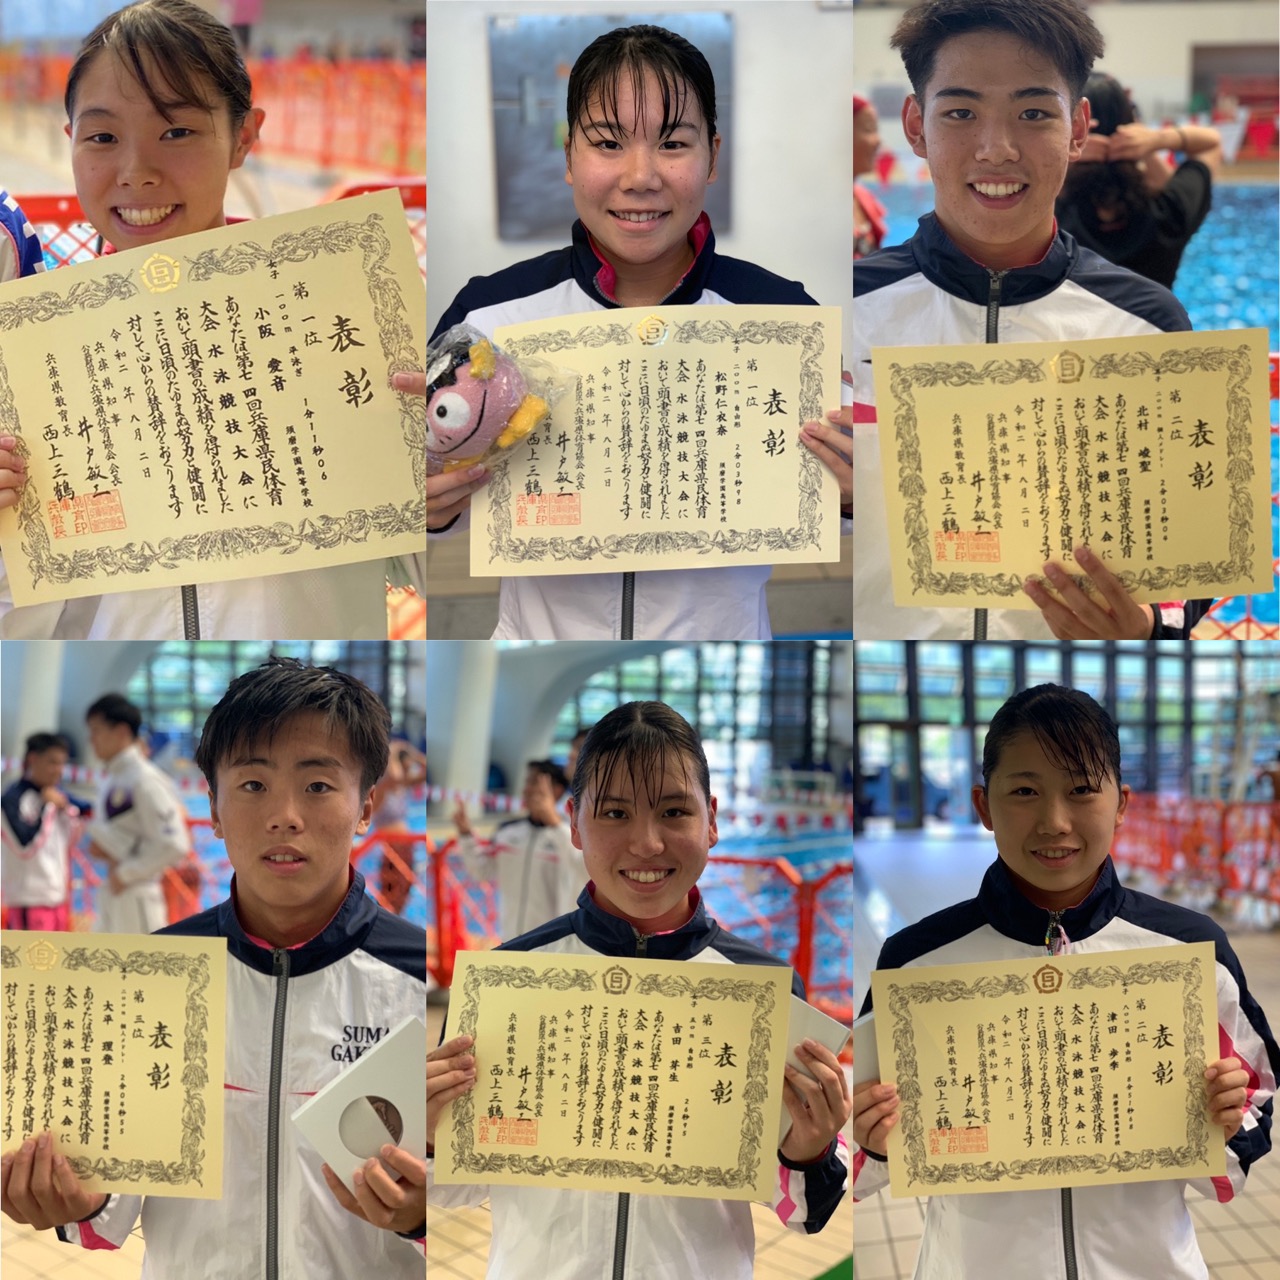 表彰
第一位
女子 一〇〇m 平泳ぎ 1分11秒06
小阪 愛音 須磨学園高等学校
あなたは第七四回兵庫県民体育
大会水泳競技大会に
おいて頭書の成績を得られました
ここに日頃のたゆまぬ努力と健闘に
対して心からの賛辞をおくります
令和二年八月二日
公益財団法人兵庫県体育協会会長
兵庫県知事 井戸敏三
兵庫県教育長 西上三鶴
表彰
第一位
女子 二〇〇m 自由形 2分03秒98
松野仁衣奈 須磨学園高等学校
あなたは第七四回兵庫県民体育
大会水泳競技大会に
おいて頭書の成績を得られました
ここに日頃のたゆまぬ努力と健闘に
対して心からの賛辞をおくります
令和二年八月二日
公益財団法人兵庫県体育協会会長
兵庫県知事 井戸敏三
教育長 西上三鶴
表彰
第二位
二〇〇m 個人メドレー 2分03秒04
北村 崚聖 須磨学園高等学校
あなたは第七四回兵庫県民体育
大会水泳競技大会に
おいて頭書の成績を得られました
ここに日頃のたゆまぬ努力と健闘に
対して心からの賛辞をおくります
令和二年八月二日
公益財団法人兵庫県体育協会会長
兵庫県知事 井戸敏三
兵庫県教育長 西上三鶴
表彰
第三位
二〇〇m 個人メドレー 2分06秒55
大平 理登 須磨学園高等学校
あなたは第七四回兵庫県民体育
大会水泳競技大会に
おいて頭書の成績を得られました
ここに日頃のたゆまぬ努力と健闘に
対して心からの賛辞をおくります
SUMA
GAK
表彰
第三位
女子 五〇m 自由形 26秒95
吉田 芽生 須磨学園高等学校
あなたは第七四回兵庫県民体育
大会水泳競技大会に
おいて頭書の成績を得られました
ここに日頃のたゆまぬ努力と健闘に
対して心からの賛辞をおくります
令和二年八月二日
公益財団法人兵庫県体育協会会長
兵庫県知事 井戸敏三
兵庫県教育長 西上三鶴
表彰
第二位
女子 八〇〇m 自由形 8分51秒68
津田 歩季 須磨学園高等学校
あなたは第七四回兵庫県民体育
大会水泳競技大会に
おいて頭書の成績を得られました
ここに日頃のたゆまぬ努力と健闘に
対して心からの賛辞をおくります
令和二年八月二日
公益財団法人兵庫県体育協会会長
兵庫県知事 井戸敏三
兵庫県教育長 西上三鶴